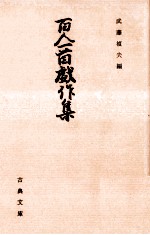 武藤禎夫編
百人一首戯作集
古典文庫